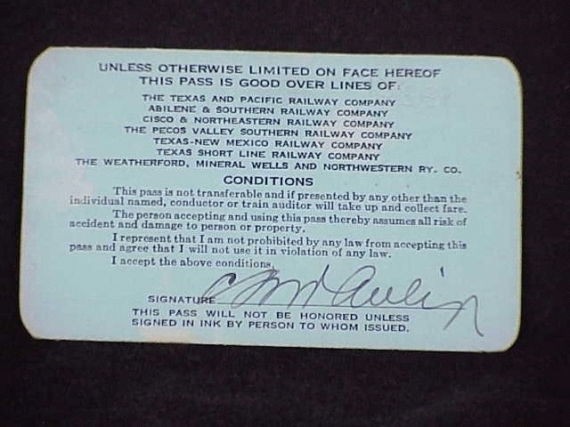 UNLESS OTHERWISE LIMITED ON FACE HEREOF
THIS PASS IS GOOD OVER LINES OF:
THE TEXAS AND PACIFIC RAILWAY COMPANY
ABILENE & SOUTHERN RAILWAY COMPANY
CISCO & NORTHEASTERN RAILWAY COMPANY
THE PECOS VALLEY SOUTHERN RAILWAY COMPANY
TEXAS-NEW MEXICO RAILWAY COMPANY
TEXAS SHORT LINE RAILWAY COMPANY
THE WEATHERFORD, MINERAL WELLS AND NORTHWESTERN RY. CO.
CONDITIONS
This pass is not transferable and if presented by any other than the
individual named, conductor or train auditor will take up and collect fare.
The person accepting and using this pass thereby assumes all risk of
accident and damage to person or property.
I represent that I am not prohibited by any law from accepting this
pass and agree that I will not use it in violation of any law.
I accept the above conditions.
SIGNATURE
THIS PASS WILL NOT BE HONORED UNLESS
SIGNED IN INK BY PERSON TO WHOM ISSUED.